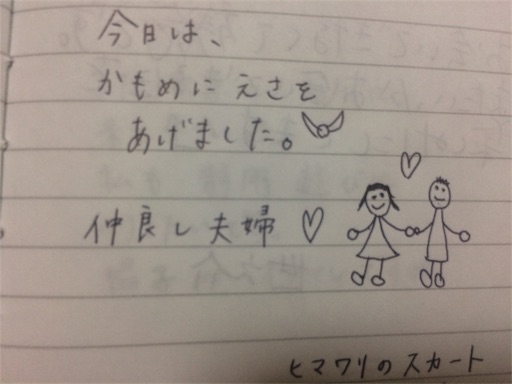 今日は、
かもめにえさを
あげました。
仲良し夫婦♡
ヒマワリのスカート